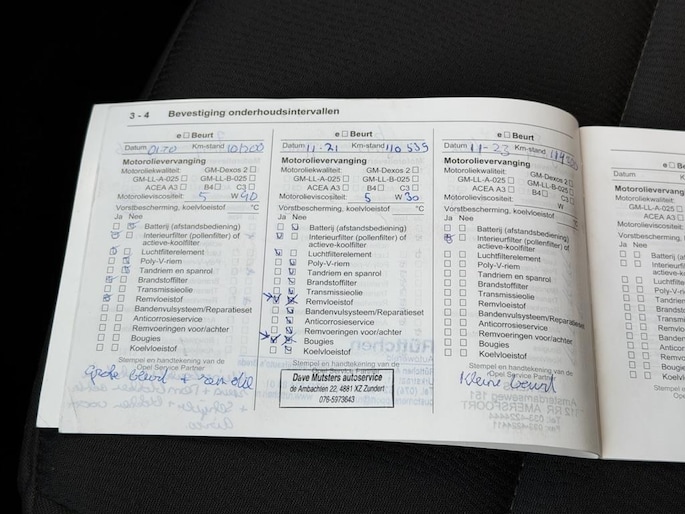 3 - 4 Bevestiging onderhoudsintervallen
e Beurt
Datum Km-stand
Motorolievervanging
Motoroliekwaliteit: GM-Dexos 2
GM-LL-A-025 GM-LL-B-025
ACEA A3 B4 C3
Motorolieviscositeit: 5 W 40
Vorstbescherming, koelvloeistof °C
Ja Nee
Batterij (afstandsbediening)
Interieurfilter (pollenfilter) of
actieve-koolfilter
Luchtfilterelement
Poly-V-riem
Tandriem en spanrol
Brandstoffilter
Transmissieolie
Remvloeistof
Bandenvulsysteem/Reparatieset
Anticorrosieservice
Remvoeringen voor/achter
Bougies
Koelvloeistof
Stempel en handtekening van de
Opel Service Partner
Grote beurt +
e Beurt
Datum 11-21 Km-stand 110 535
Motorolievervanging
Motoroliekwaliteit: GM-Dexos 2
GM-LL-A-025 GM-LL-B-025
ACEA A3 B4 C3
Motorolieviscositeit: 5 W 30
Vorstbescherming, koelvloeistof °C
Ja Nee
Batterij (afstandsbediening)
Interieurfilter (pollenfilter) of
actieve-koolfilter
Luchtfilterelement
Poly-V-riem
Tandriem en spanrol
Brandstoffilter
Transmissieolie
Remvloeistof
Bandenvulsysteem/Reparatieset
Anticorrosieservice
Remvoeringen voor/achter
Bougies
Koelvloeistof
Stempel en handtekening van de
Opel Service Partner
Dave Mutsters autoservice
de Ambachten 22, 4881 XZ Zundert
076-5973643
e Beurt
Datum 11-23 Km-stand
Motorolievervanging
Motoroliekwaliteit: GM-Dexos 2
GM-LL-A-025 GM-LL-B-025
ACEA A3 B4 C3
Motorolieviscositeit: W
Vorstbescherming, koelvloeistof °C
Ja Nee
Batterij (afstandsbediening)
Interieurfilter (pollenfilter) of
actieve-koolfilter
Luchtfilterelement
Poly-V-riem
Tandriem en spanrol
Brandstoffilter
Transmissieolie
Remvloeistof
Bandenvulsysteem/Reparatieset
Anticorrosieservice
Remvoeringen voor/achter
Bougies
Koelvloeistof
Stempel en handtekening van de
Opel Service Partner
Kleine beurt
Datum Km
Motorolievervanging
Motoroliekwaliteit:
GM-LL-A-025
ACEA A3
Motorolieviscositeit:
Vorstbescherming,
Ja Nee
Batterij (af
Interieurfilter
actieve-ko
Luchtfilter
Poly-V-rie
Tandriem
Brandstof
Transmis
Remvloe
Banden
Anticorr
Remvoe
Bougies
Koelvlo
Stempel